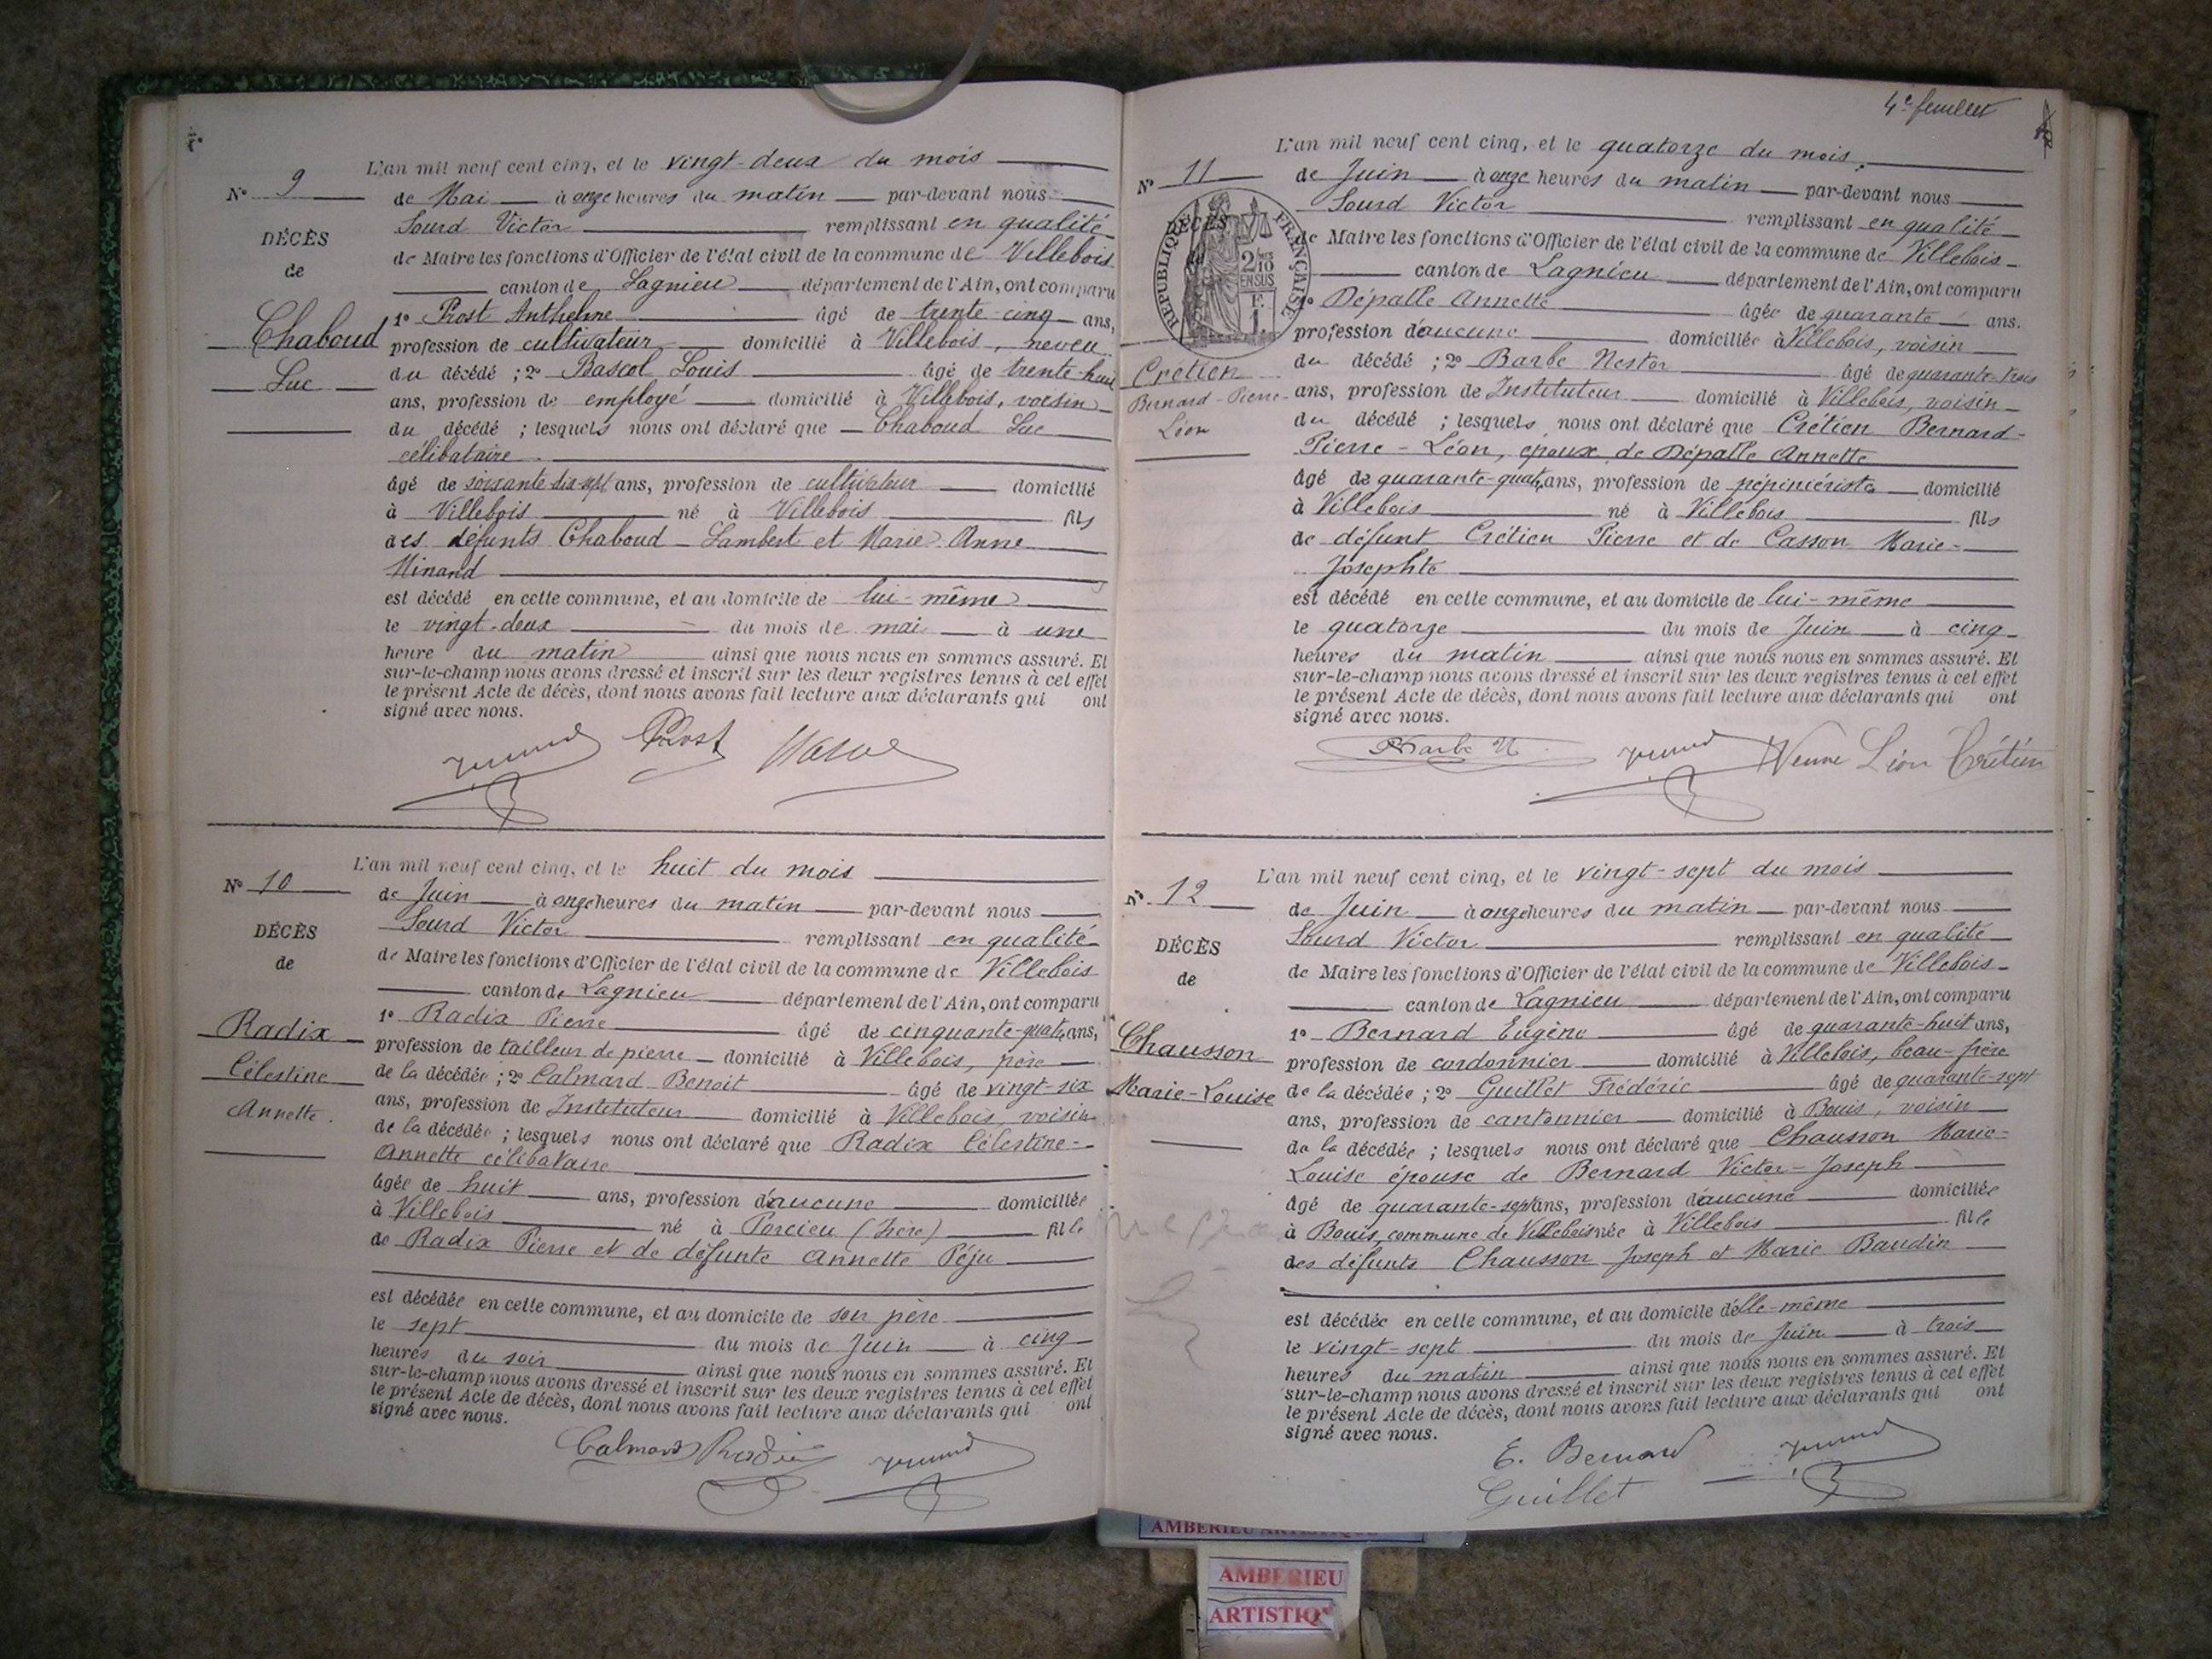 L'an mil neuf cent cinq, et le vingt-deux du mois
N° 9
de Mai à onze heures du matin par-devant nous
Sourd Victor remplissant en qualité
DÉCÈS
de Maire les fonctions d'Officier de l'état civil de la commune de Villebois
de
canton de Lagnieu département de l'Ain, ont comparu
1° Prost Anthelme âgé de trente-cinq ans,
Chaboud
profession de cultivateur domicilié à Villebois, neveu
Luc
du décédé ; 2° Bascol Louis âgé de trente-huit
ans, profession de employé domicilié à Villebois, voisin
du décédé ; lesquels nous ont déclaré que Chaboud Luc
célibataire
âgé de soixante dix-sept ans, profession de cultivateur domicilié
à Villebois né à Villebois fils
des défunts Chaboud Lambert et Marie Anne
Minand
est décédé en cette commune, et au domicile de lui-même
le vingt-deux du mois de mai à une
heure du matin ainsi que nous nous en sommes assuré. Et
sur-le-champ nous avons dressé et inscrit sur les deux registres tenus à cet effet
le présent Acte de décès, dont nous avons fait lecture aux déclarants qui ont
signé avec nous.
Prost
L'an mil neuf cent cinq, et le huit du mois
N° 10
de Juin à onze heures du matin par-devant nous
Sourd Victor remplissant en qualité
DÉCÈS
de Maire les fonctions d'Officier de l'état civil de la commune de Villebois
de
canton de Lagnieu département de l'Ain, ont comparu
1° Radix Pierre âgé de cinquante-quatre ans,
Radix
profession de tailleur de pierre domicilié à Villebois, père
Célestine
de la décédée ; 2° Calmard Benoit âgé de vingt-six
Annette.
ans, profession de Instituteur domicilié à Villebois, voisin
de la décédée ; lesquels nous ont déclaré que Radix Célestine-
Annette célibataire
âgée de huit ans, profession d'aucune domiciliée
à Villebois né à Porcieu (Isère) fille
de Radix Pierre et de défunte Annette Péju
est décédée en cette commune, et au domicile de son père
le sept du mois de Juin à cinq
heures du soir ainsi que nous nous en sommes assuré. Et
sur-le-champ nous avons dressé et inscrit sur les deux registres tenus à cet effet
le présent Acte de décès, dont nous avons fait lecture aux déclarants qui ont
signé avec nous.
Calmard Radix
4e feuillet
L'an mil neuf cent cinq, et le quatorze du mois
N° 11
de Juin à onze heures du matin par-devant nous
Sourd Victor remplissant en qualité
DÉCÈS
RÉPUBLIQUE FRANÇAISE
2/10 EN SUS
F.
1.
de Maire les fonctions d'Officier de l'état civil de la commune de Villebois
canton de Lagnieu département de l'Ain, ont comparu
1° Dépalle Annette âgée de quarante ans.
profession d'aucune domiciliée à Villebois, voisin
Crétien
du décédé ; 2° Barbe Nestor âgé de quarante-trois
Bernard-Pierre-
ans, profession de Instituteur domicilié à Villebois, voisin
Léon
du décédé ; lesquels nous ont déclaré que Crétien Bernard-
Pierre-Léon, époux de Dépalle Annette
âgé de quarante-quatre ans, profession de pépiniériste domicilié
à Villebois né à Villebois fils
de défunt Crétien Pierre et de Casson Marie-
Josephte
est décédé en cette commune, et au domicile de lui-même
le quatorze du mois de Juin à cinq
heures du matin ainsi que nous nous en sommes assuré. Et
sur-le-champ nous avons dressé et inscrit sur les deux registres tenus à cet effet
le présent Acte de décès, dont nous avons fait lecture aux déclarants qui ont
signé avec nous.
Barbe N. Veuve Léon Crétien
L'an mil neuf cent cinq, et le vingt-sept du mois
N° 12
de Juin à onze heures du matin par-devant nous
Sourd Victor remplissant en qualité
DÉCÈS
de Maire les fonctions d'Officier de l'état civil de la commune de Villebois
de
canton de Lagnieu département de l'Ain, ont comparu
1° Bernard Eugène âgé de quarante-huit ans,
Chausson
profession de cordonnier domicilié à Villebois, beau-frère
Marie-Louise
de la décédée ; 2° Guillet Frédéric âgé de quarante-sept
ans, profession de cantonnier domicilié à Bouis, voisin
de la décédée ; lesquels nous ont déclaré que Chausson Marie-
Louise épouse de Bernard Victor-Joseph
âgé de quarante-sept ans, profession d'aucune domiciliée
à Bouis, commune de Villebois née à Villebois fille
des défunts Chausson Joseph et Marie Baudin
est décédée en cette commune, et au domicile d'elle-même
le vingt-sept du mois de Juin à trois
heures du matin ainsi que nous nous en sommes assuré. Et
sur-le-champ nous avons dressé et inscrit sur les deux registres tenus à cet effet
le présent Acte de décès, dont nous avons fait lecture aux déclarants qui ont
signé avec nous.
E. Bernard
Guillet
AMBERIEU ARTISTIQUE
AMBERIEU
ARTISTIQ